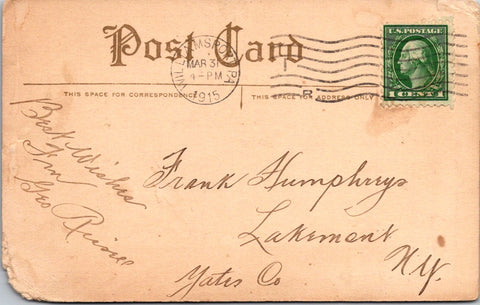 Post Card
WILLIAMSPORT, PA
MAR 3
4-PM
1915
U.S. POSTAGE
1 CENT 1
R
THIS SPACE FOR CORRESPONDENCE
THIS SPACE FOR ADDRESS ONLY
Best Wishes
Frm
Geo
Frank Humphrys
Lakemont
N.Y.
Yates Co